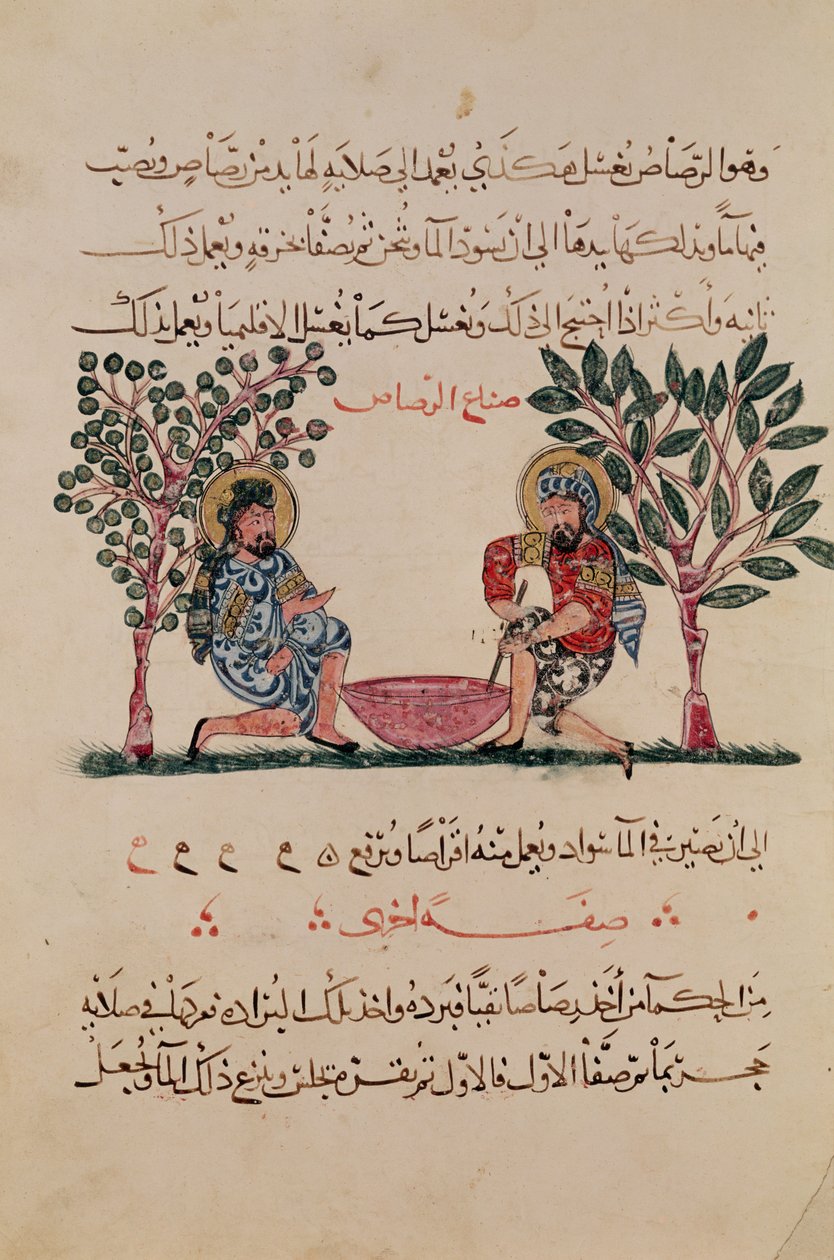 وهو الرصاص يغسل هكذي يعمد الي صلابة لها يد من رصاص ويصب
فيها مآ ويدلكها بيدها الي ان يسود المآ ويثخن ثم يصفا بخرقة ويعمل ذلك
ثانية وأكثر اذا احتيج الي ذلك ويغسل كما يغسل الاقليميا ويعمل بذلك
صناع الرصاص
الي ان يصير في المآ سواد ويعمل منه اقراصا ويرفع ه م م م م
صفة اخرى
من الحكمآ من أخذ رصاصا نقيا فبرده واخذ تلك البرادة فعركها في صلابة
حجر بما ثم صفا الاول فالاول ثم يتركه يجلس وينزع ذلك المآ ويجعل